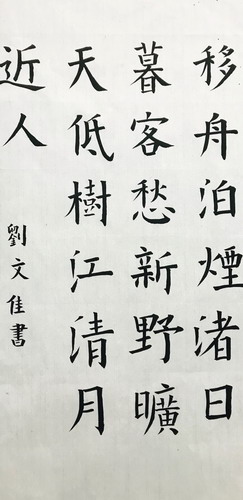 移舟泊煙渚日
暮客愁新野曠
天低樹江清月
近人
劉文佳書